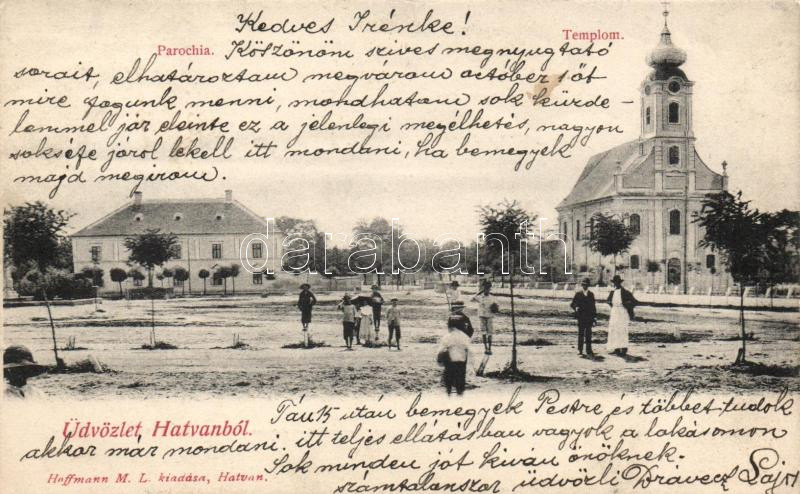 Kedves Irénke!
Templom.
Parochia.
Köszönöm szives megnyugtató
sorait, elhatároztam megvárom october 1őt
mire fogunk menni, mondhatom sok kürde-
lemmel jár eleinte ez a jelenlegi megélhetés, nagyon
sokféle járol kell itt mondani, ha bemegyek
majd megirom.
databanth
Üdvözlet Hatvanból.
után bemegyek Pestre és többet tudok
akkor már mondani. itt teljes ellátásban vagyok a lakásomon
Sok minden jót kiván önöknek.
számtalanszor üdvözli Dravecz Lajos
Hoffmann M. L. kiadása, Hatvan.